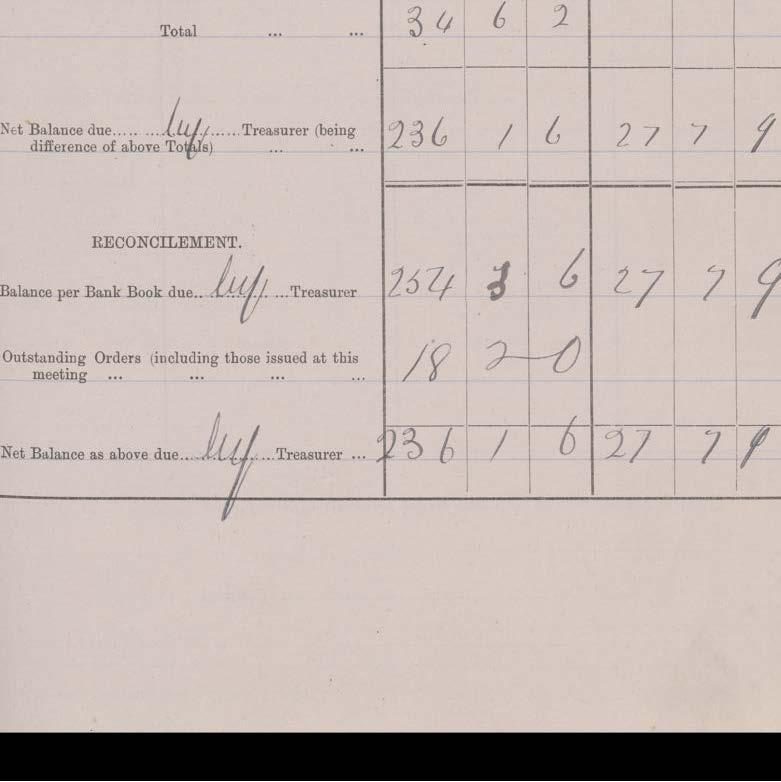 Total ... ... 34 6 2
Net Balance due..... .....by......Treasurer (being 236 1 6 27 7 9
difference of above Totals) ... ...
RECONCILEMENT.
Balance per Bank Book due.. by ...Treasurer 254 3 6 27 7 9
Outstanding Orders (including those issued at this 18 2 0
meeting ... ... ... ...
Net Balance as above due... by ...Treasurer ... 236 1 6 27 7 9